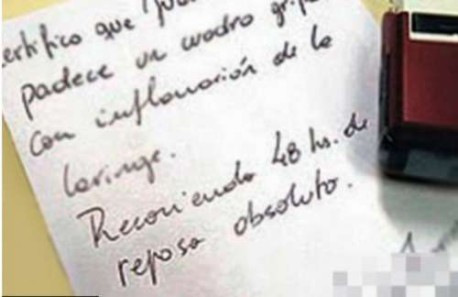 certifico que
padece un cuadro grip
con inflamación de la
laringe.
Recomiendo 48 hs. de
reposo absoluto.